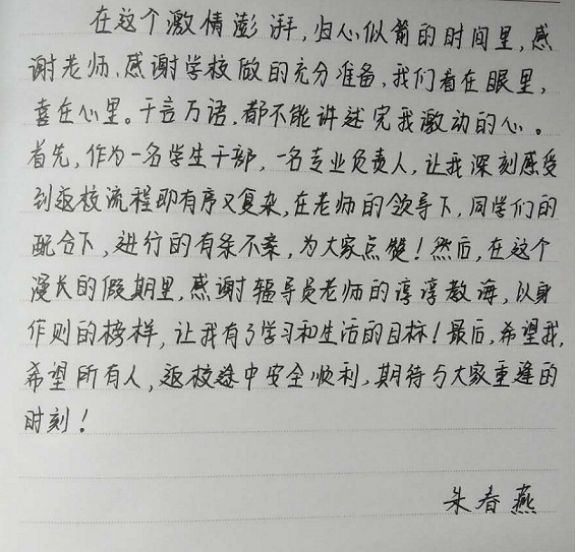 在这个激情澎湃，归心似箭的时间里，感
谢老师、感谢学校做的充分准备，我们看在眼里，
喜在心里。千言万语，都不能讲述完我激动的心。
首先，作为一名学生干部，一名专业负责人，让我深刻感受
到返校流程即有序又复杂，在老师的领导下，同学们的
配合下，进行的有条不紊，为大家点赞！然后，在这个
漫长的假期里，感谢辅导员老师的谆谆教海，以身
作则的榜样，让我有了学习和生活的目标！最后，希望我，
希望所有人，返校途中安全顺利，期待与大家重逢的
时刻！
朱春燕